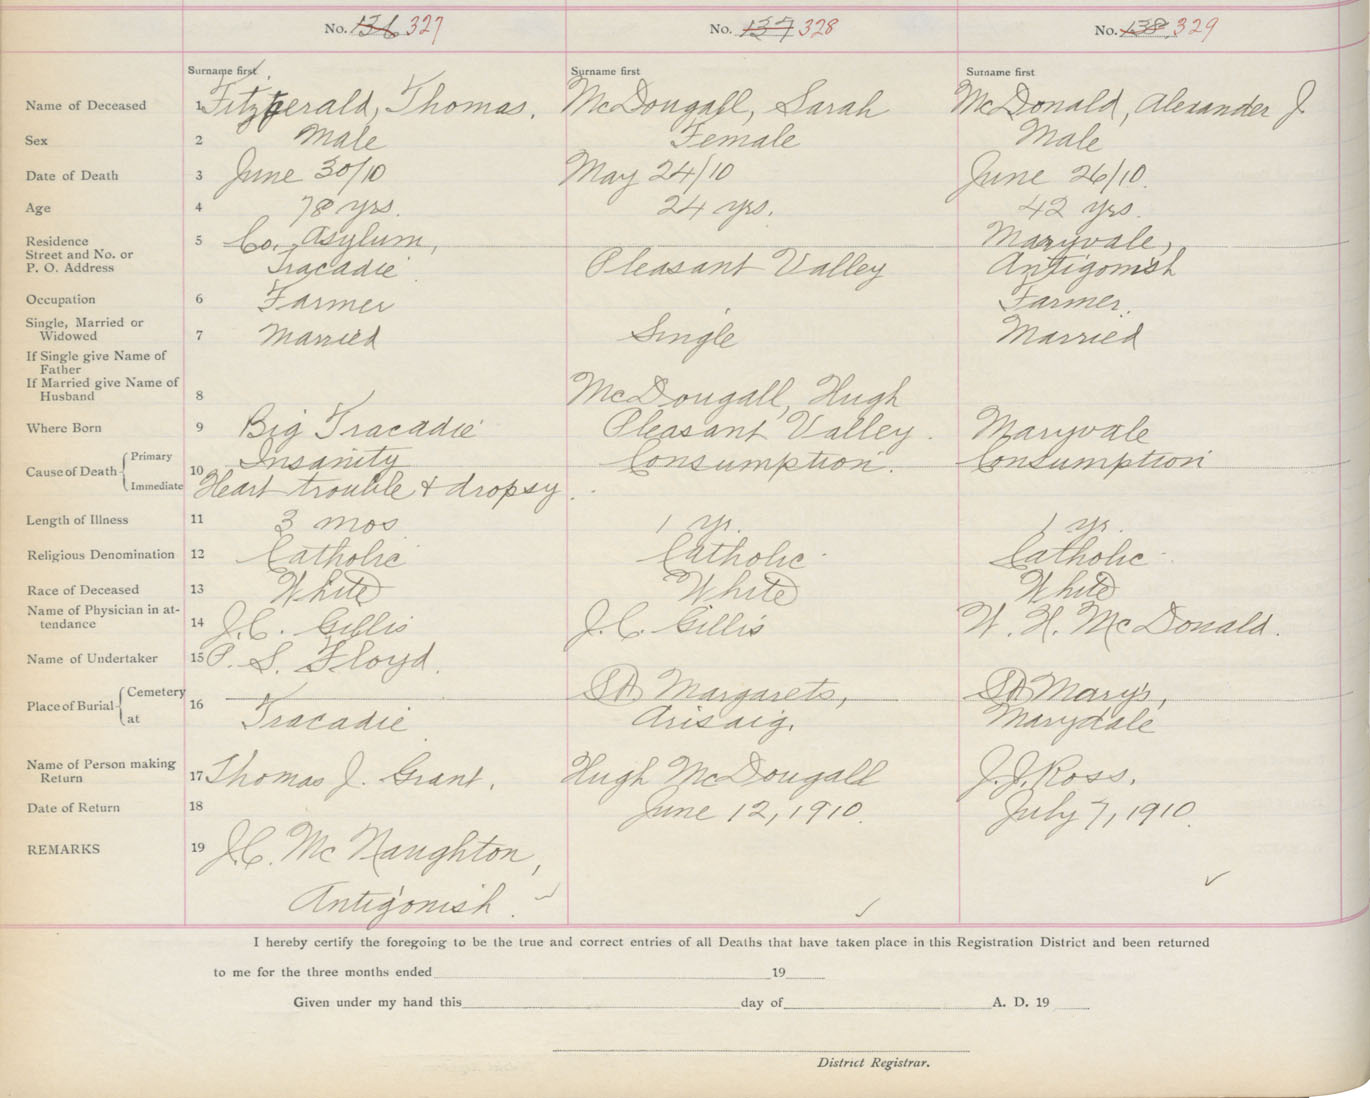 No. 136 327 No. 137 328 No. 138 329
Surname first Surname first Surname first
Name of Deceased 1 Fitzgerald, Thomas. McDougall, Sarah McDonald, Alexander J
Sex 2 Male Female Male
Date of Death 3 June 30/10 May 24/10 June 26/10
Age 4 78 yrs. 24 yrs. 42 yrs.
Residence 5 Co. Asylum, Maryvale,
Street and No. or
P. O. Address Tracadie Pleasant Valley Antigonish
Occupation 6 Farmer Farmer.
Single, Married or
Widowed 7 Married Single Married
If Single give Name of
Father
If Married give Name of
Husband 8 McDougall, Hugh
Where Born 9 Big Tracadie Pleasant Valley. Maryvale
Cause of Death Primary 10 Insanity Consumption. Consumption
Immediate Heart trouble & dropsy.
Length of Illness 11 3 mos 1 yr. 1 yr.
Religious Denomination 12 Catholic Catholic Catholic
Race of Deceased 13 White White White
Name of Physician in at-
tendance 14 J.C. Gillis J.C. Gillis W. H. McDonald.
Name of Undertaker 15 P. S. Floyd.
Place of Burial Cemetery 16 St Margarets, St Mary's,
at Tracadie Arisaig. Marydale
Name of Person making
Return 17 Thomas J. Grant. Hugh McDougall J.J. Ross.
Date of Return 18 June 12, 1910. July 7, 1910.
REMARKS 19 J.C. McNaughton,
Antigonish.
I hereby certify the foregoing to be the true and correct entries of all Deaths that have taken place in this Registration District and been returned
to me for the three months ended 19
Given under my hand this day of A. D. 19
District Registrar.